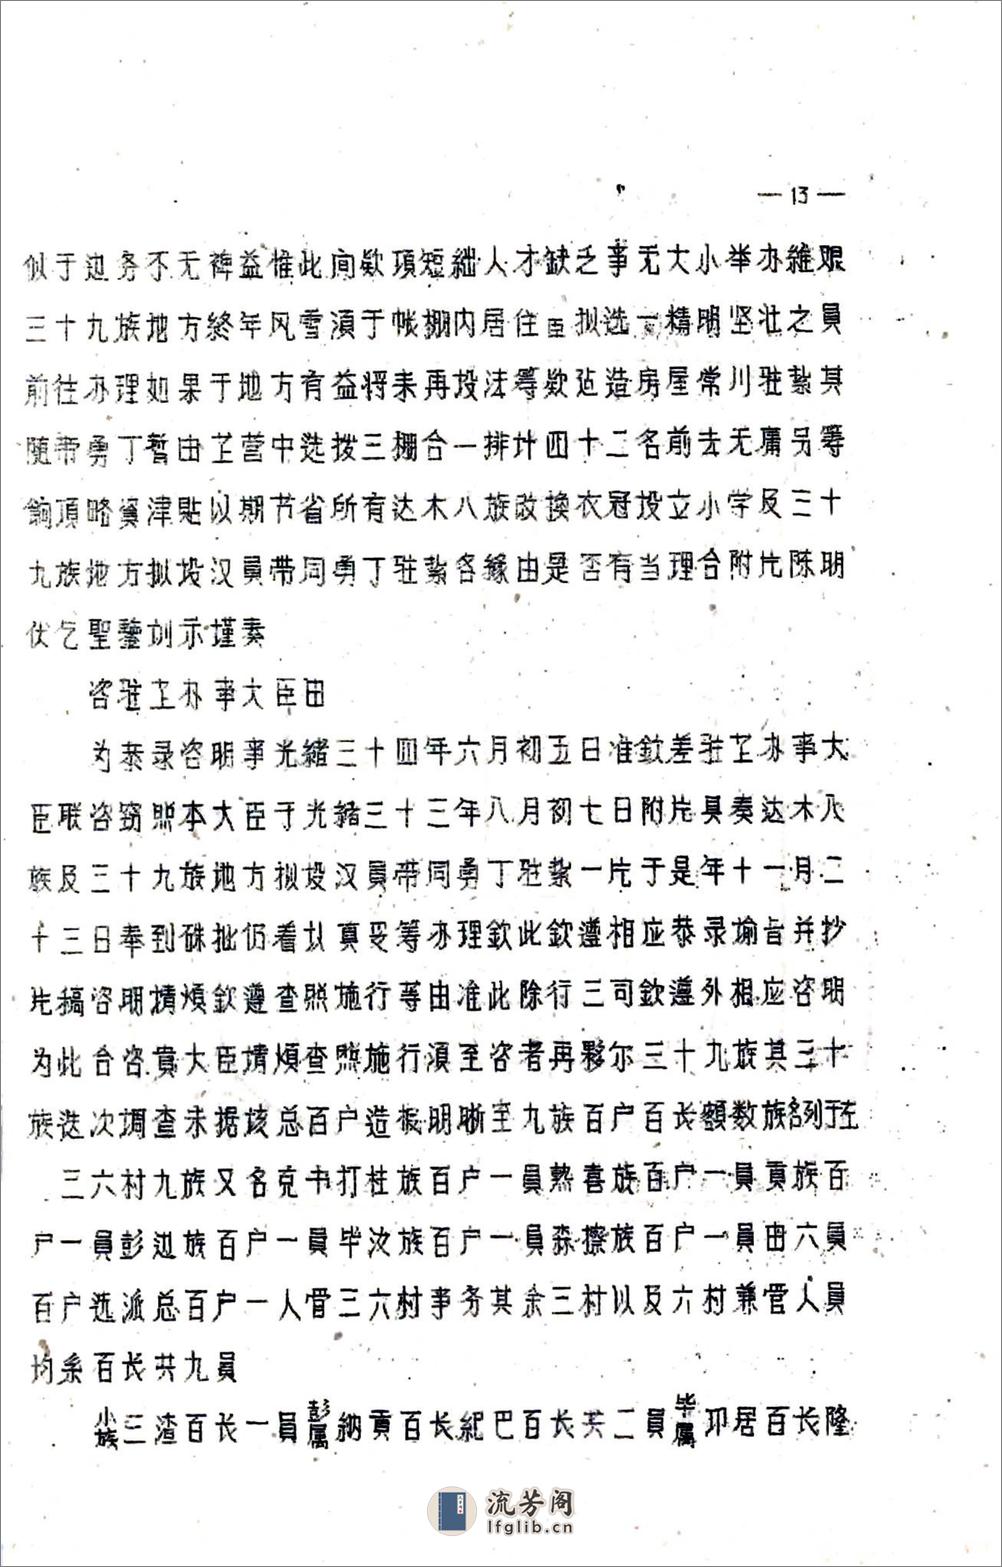 —13—
似于边务不无裨益惟此间欵項短絀人才缺乏事无大小举办維艰
三十九族地方終年风雪湏于帐棚内居住臣拟选一精明坚壮之員
前往办理如果于地方有益将来再投法筹欵起造房屋常川驻紥其
随带勇丁暂由芷营中选拨三棚合一排计四十二名前去无庸另筹
餉項略資津贴以期节省所有达木八族改换衣冠投立小学及三十
九族地方拟投汉員带同勇丁驻紥各緣由是否有当理合附片陈明
伏乞聖鑒訓示謹奏
咨驻芷办事大臣由
为恭录咨明事光緒三十四年六月初五日准欽差驻芷办事大
臣联咨窃照本大臣于光緒三十三年八月初七日附片具奏达木八
族及三十九族地方拟投汉員带同勇丁驻紥一片于是年十一月二
十三日奉到硃批仍着认真妥筹办理欽此欽遵相应恭录諭旨并抄
片稿咨明請煩欽遵查照施行等由准此除行三司欽遵外相应咨明
为此合咨貴大臣請煩查照施行湏至咨者再夥尔三十九族其三十
族迭次調查未据該总百户造报明晰至九族百户百长額数族名列于左
三六村九族又名克卡打桂族百户一員熟喜族百户一員貢族百
户一員彭边族百户一員毕汝族百户一員森擦族百户一員由六員
百户选派总百户一人管三六村事务其余三村以及六村兼管人員
均系百长共九員
小族三渣百长一員彭属納貢百长紀巴百长共二員毕属邛居百长隆
流芳阁
lfglib.cn